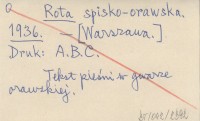 Q Rota spisko-orawska.
1936. – [Warszawa.]
Druk: A.B.C.
Tekst pieśni w gwarze
orawskiej.